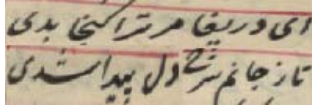 ای دریغا مر ترا گنجا بدی
تا ز جانم شرح دل پیدا شدی